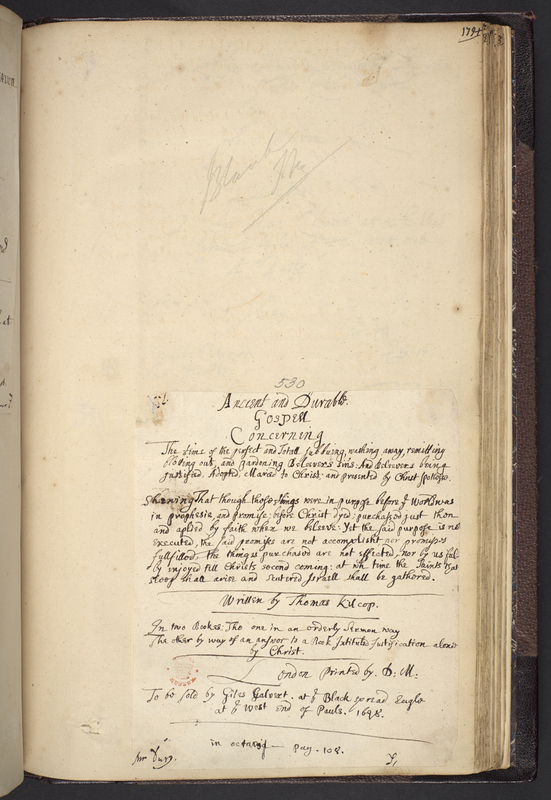 1794
Blank
530
Ancient and Durable
GOSPEll
Concerning
The time of the perfect and Totall subduing, washing away, remitting
blotting out, and pardoning Beleevers sins: And Beleevers being
Justified, Adopted, Maried to Christ, and presented by Christ spotless.
Shewing That though those things were in purpose before ye World was
in prophesie, and promise, before Christ dyed: purchased just then
and aplied by faith when we beleeve: Yet the said purpose is not
executed, the said promises are not accomplisht nor promises
fullfilled: the things purchased are not effected, nor by us ful-
ly injoyed till Christs second coming: at wh time the Saints that
sleep shall arise and scatired Israell shall be gathered.
Written by Thomas Kilcop.
In two Bookes: The one in an orderly Sermon way
The other by way of an answer to a Book Intituled Justification alone
by Christ.
London Printed by. D: M:
To be sold by Giles Calvert. at ye Black spread Eagle
at ye West End of Pauls. 1648.
in octavo — pag. 108.